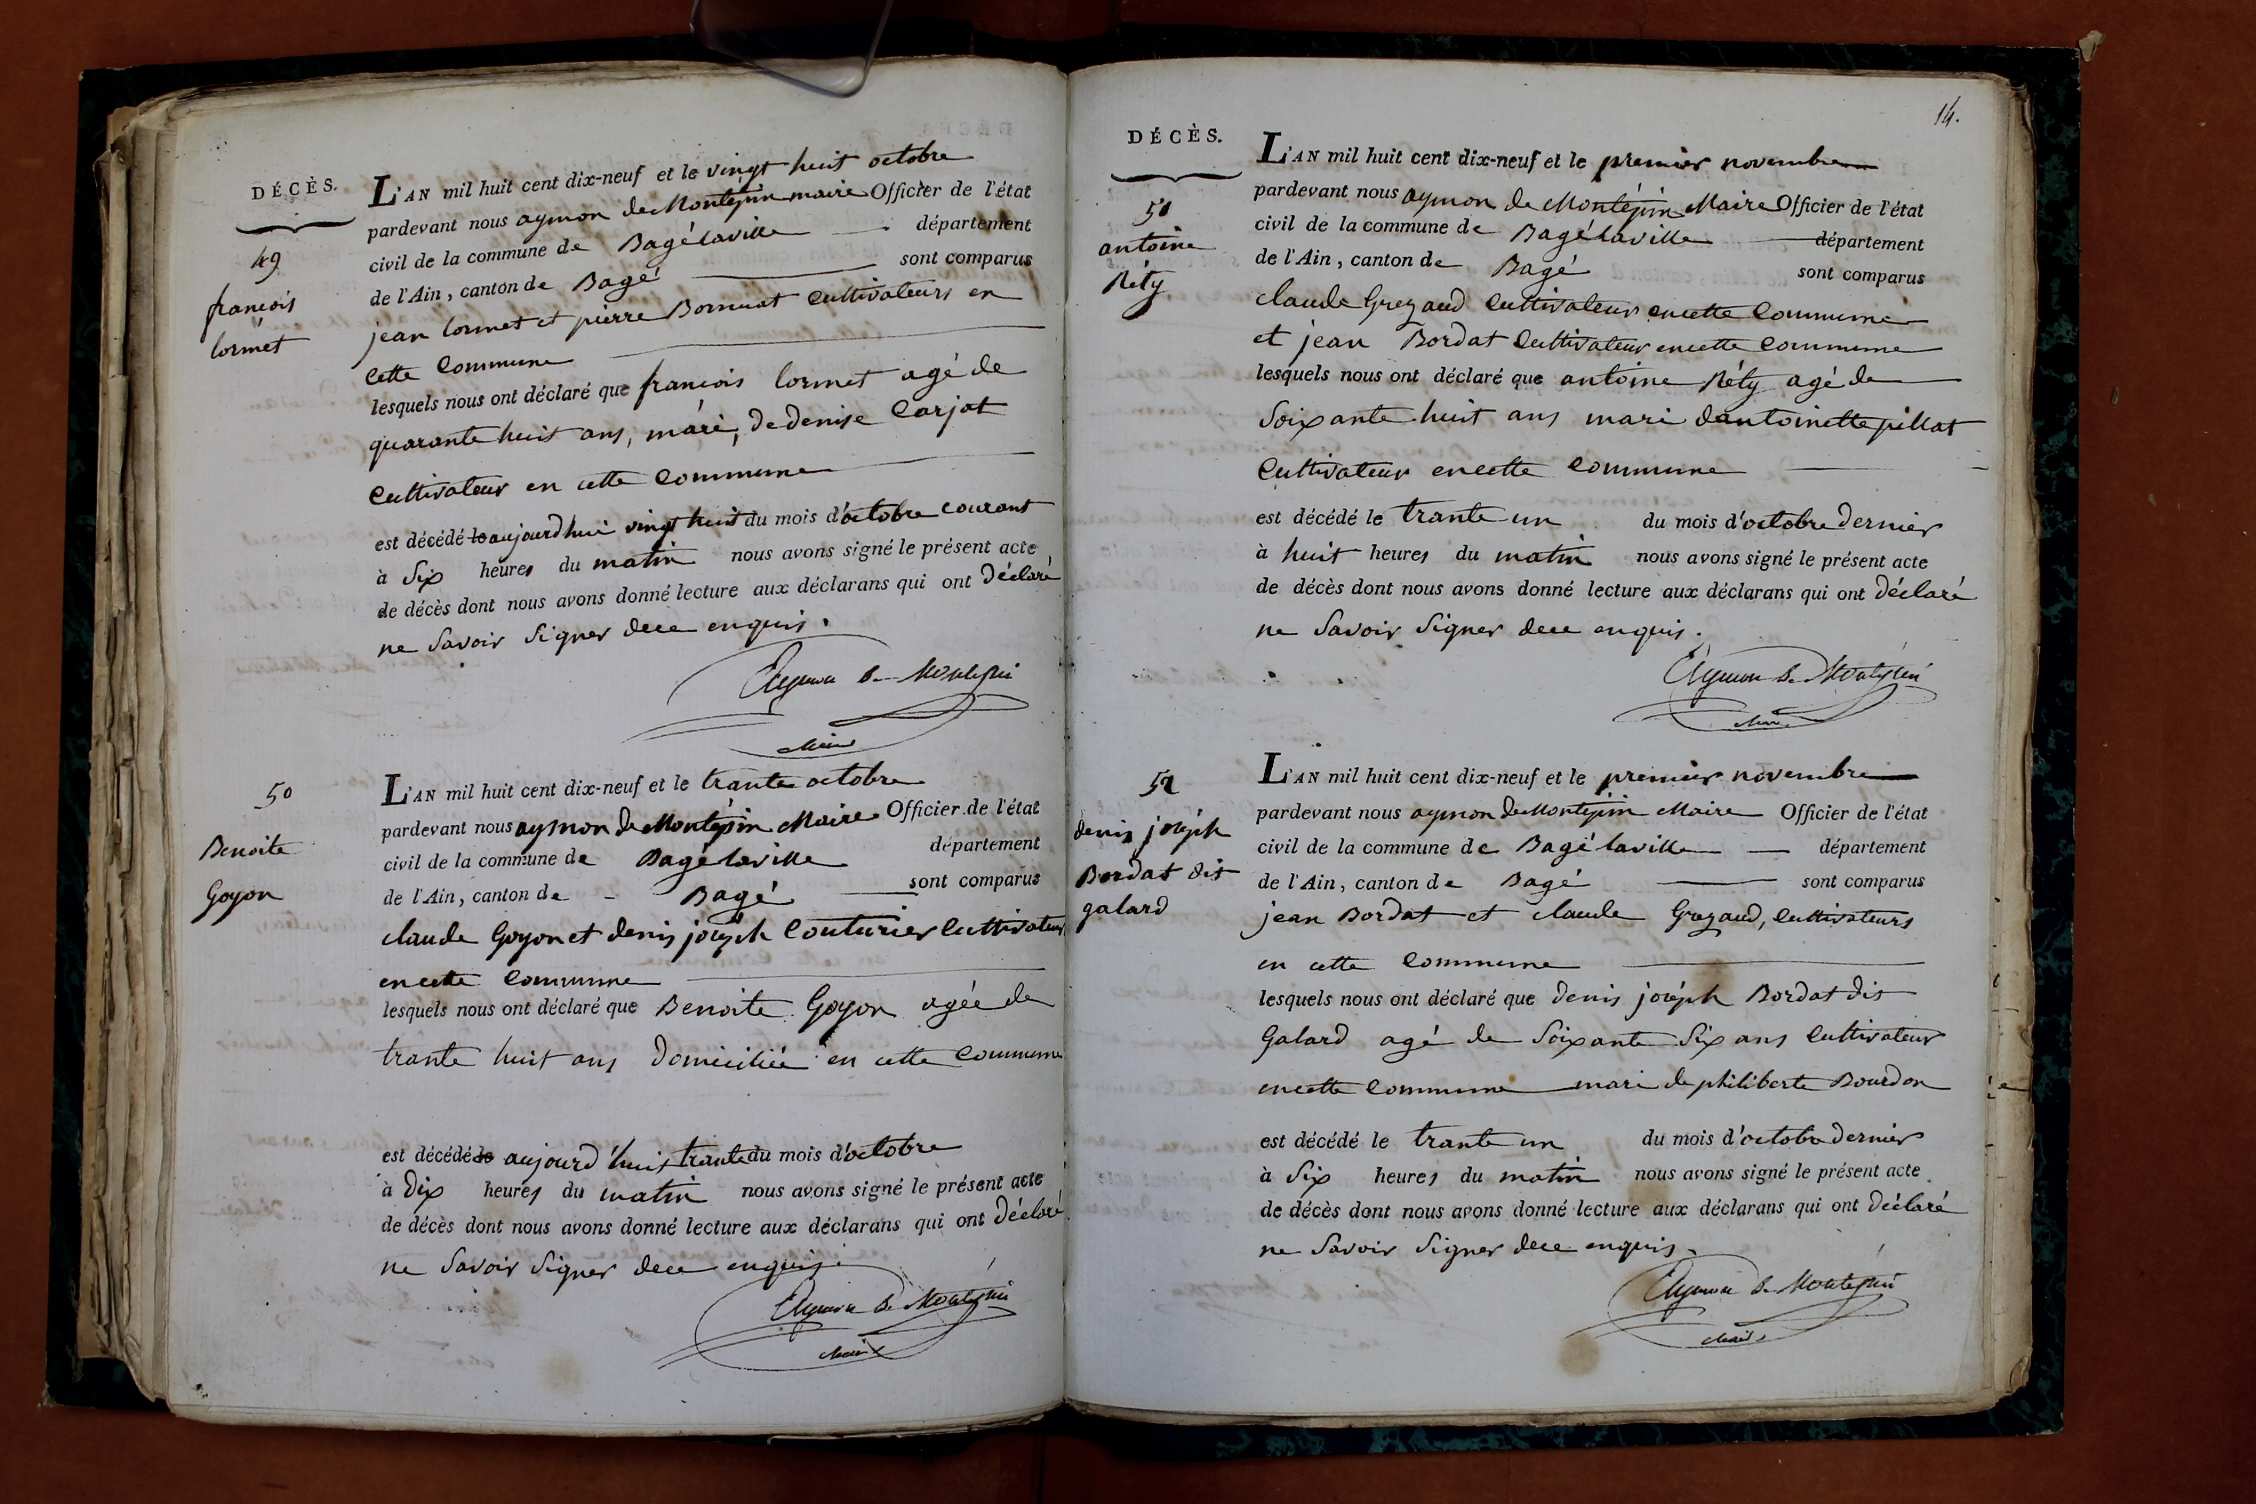 DÉCÈS.
49
francois
lormet
L'AN mil huit cent dix-neuf et le vingt huit octobre
pardevant nous aymon de Montépin maire Officier de l'état
civil de la commune de Bagélaville département
de l'Ain, canton de Bagé sont comparus
jean lormet et pierre Bornuat Cultivateurs en
cette Commune
lesquels nous ont déclaré que francois lormet agé de
quarante huit ans, mari, de denise Carjat
Cultivateur en cette Commune
est décédé le aujourdhui vingt huit du mois d'octobre courant
à Six heures du matin nous avons signé le présent acte
de décès dont nous avons donné lecture aux déclarans qui ont Déclaré
ne Savoir Signer dece enquis.
Aymon de Montepin
Maire
50
Benoite
Goyon
L'AN mil huit cent dix-neuf et le trante octobre
pardevant nous aymon de Montépin Maire Officier de l'état
civil de la commune de Bagélaville département
de l'Ain, canton de Bagé sont comparus
claude Goyon et denis joseph Couturier Cultivateurs
en cette Commune
lesquels nous ont déclaré que Benoite Goyon agée de
trante huit ans Domiciliée en cette Commune
est décédé le aujourd'hui trante du mois d'octobre
à Dix heures du matin nous avons signé le présent acte
de décès dont nous avons donné lecture aux déclarans qui ont Déclaré
ne Savoir Signer dece enquis.
Aymon de Montepin
Maire
14.
DÉCÈS.
51
antoine
Réty
L'AN mil huit cent dix-neuf et le premier novembre
pardevant nous aymon de Montépin Maire Officier de l'état
civil de la commune de Bagélaville département
de l'Ain, canton de Bagé sont comparus
claude Grezaud Cultivateur en cette Commune
et jean Bordat Cultivateur en cette Commune
lesquels nous ont déclaré que antoine Réty agé de
Soixante huit ans mari dantoinette pillat
Cultivateur en cette Commune
est décédé le trante un du mois d'octobre Dernier
à huit heures du matin nous avons signé le présent acte
de décès dont nous avons donné lecture aux déclarans qui ont Déclaré
ne Savoir Signer dece enquis.
Aymon de Montepin
Maire
52
denis joséph
Bordat dit
galard
L'AN mil huit cent dix-neuf et le premier novembre
pardevant nous aymon de Montépin Maire Officier de l'état
civil de la commune de Bagélaville département
de l'Ain, canton de Bagé sont comparus
jean Bordat et claude Grezaud, Cultivateurs
en cette Commune
lesquels nous ont déclaré que denis joséph Bordat dit
Galard agé de Soixante Six ans Cultivateur
en cette Commune mari de philiberte Bourdon
est décédé le trante un du mois d'octobre Dernier
à Six heures du matin nous avons signé le présent acte
de décès dont nous avons donné lecture aux déclarans qui ont Déclaré
ne Savoir Signer dece enquis.
Aymon de Montepin
Maire